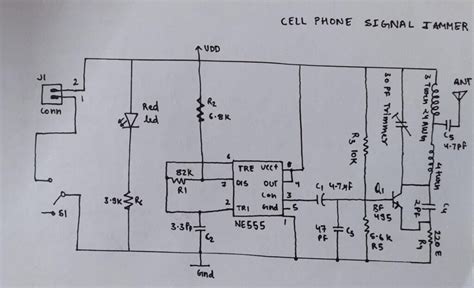 CELL PHONE SIGNAL JAMMER
VDD
J1
2
1
Conn
Red
led
R2
6.8K
30 PF Trimmer
3 Turn 24 AWG
ANT
C5
4.7PF
R3 10K
4 turn
6
TRE
VCC+
8
82K
R1
7
DIS
OUT
4
Con
3
5
2
TRI
Gnd
1
NE555
C1
4.7μF
Q1
BF
495
C4
2PF
3.9K
R6
S1
3.3PF
C2
47
PF
C3
5.6K
R5
R4
220 E
Gnd